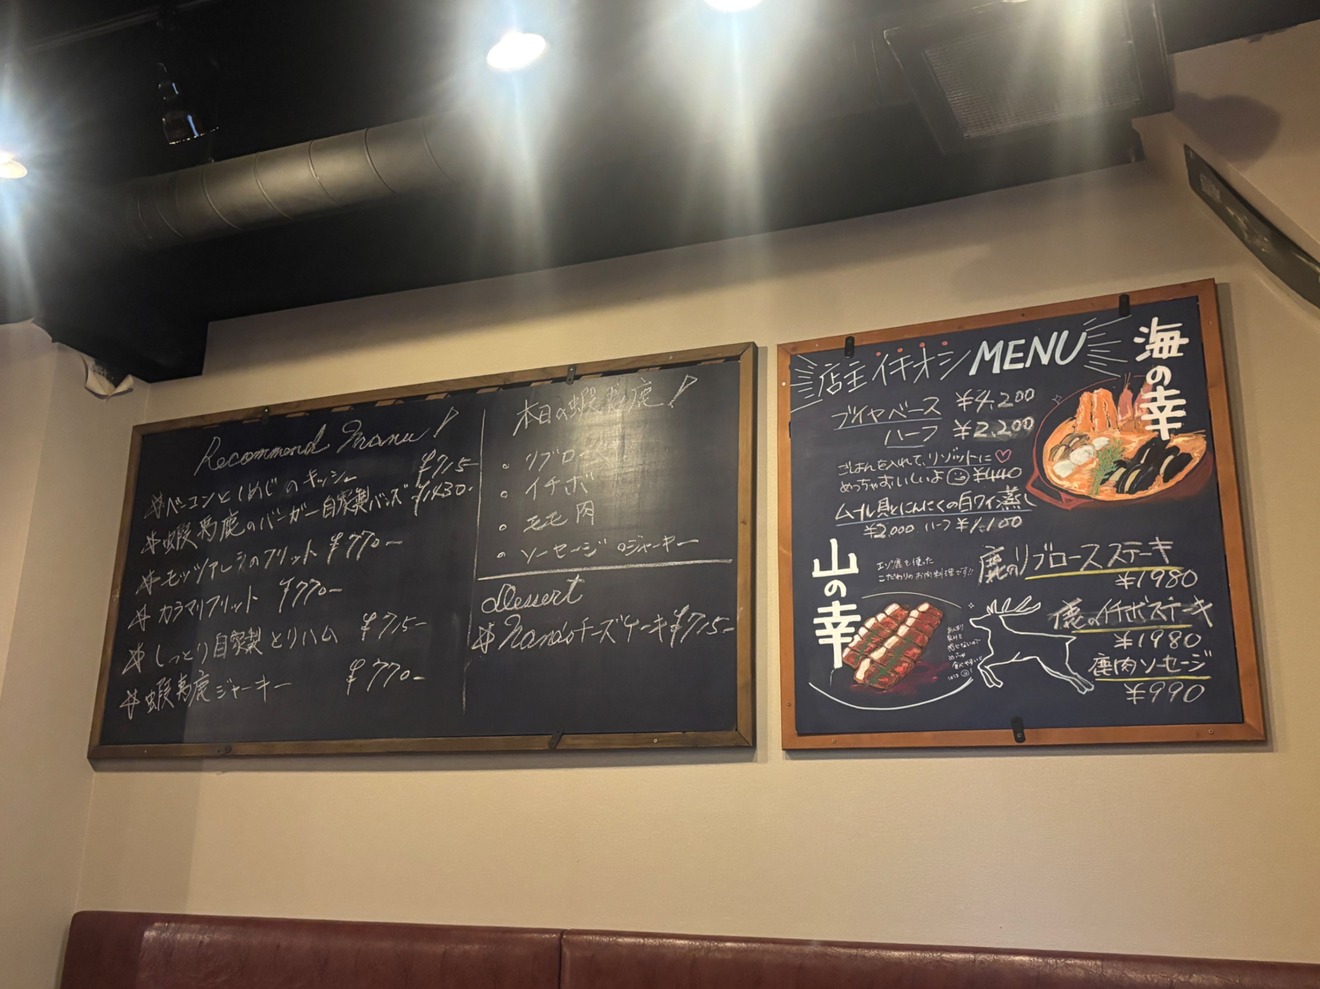 Recommend Manu!
*ベーコンとしめじのキッシュ ¥715-
*蝦夷鹿のバーガー自家製バンズ ¥1430-
*モッツァレラのフリット ¥770-
*カラマリフリット ¥770-
*しっとり自家製とりハム ¥715-
*蝦夷鹿ジャーキー ¥770-
本日の蝦夷鹿!
。リブロース
。イチボ
。モモ肉
。ソーセージ 。ジャーキー
Dessert
*Nanaのチーズケーキ ¥715-
店主イチオシMENU
海の幸
ブイヤベース ¥4,200
ハーフ ¥2,200
ごはんを入れて、リゾットに♡
めっちゃおいしいよ ¥440
ムール貝とにんにくの白ワイン蒸し
¥2,000 ハーフ ¥1,100
山の幸
エゾ鹿を使った
こだわりのお肉料理です!!
鹿のリブロースステーキ
¥1980
鹿のイチボステーキ
¥1980
鹿肉ソーセージ
¥990